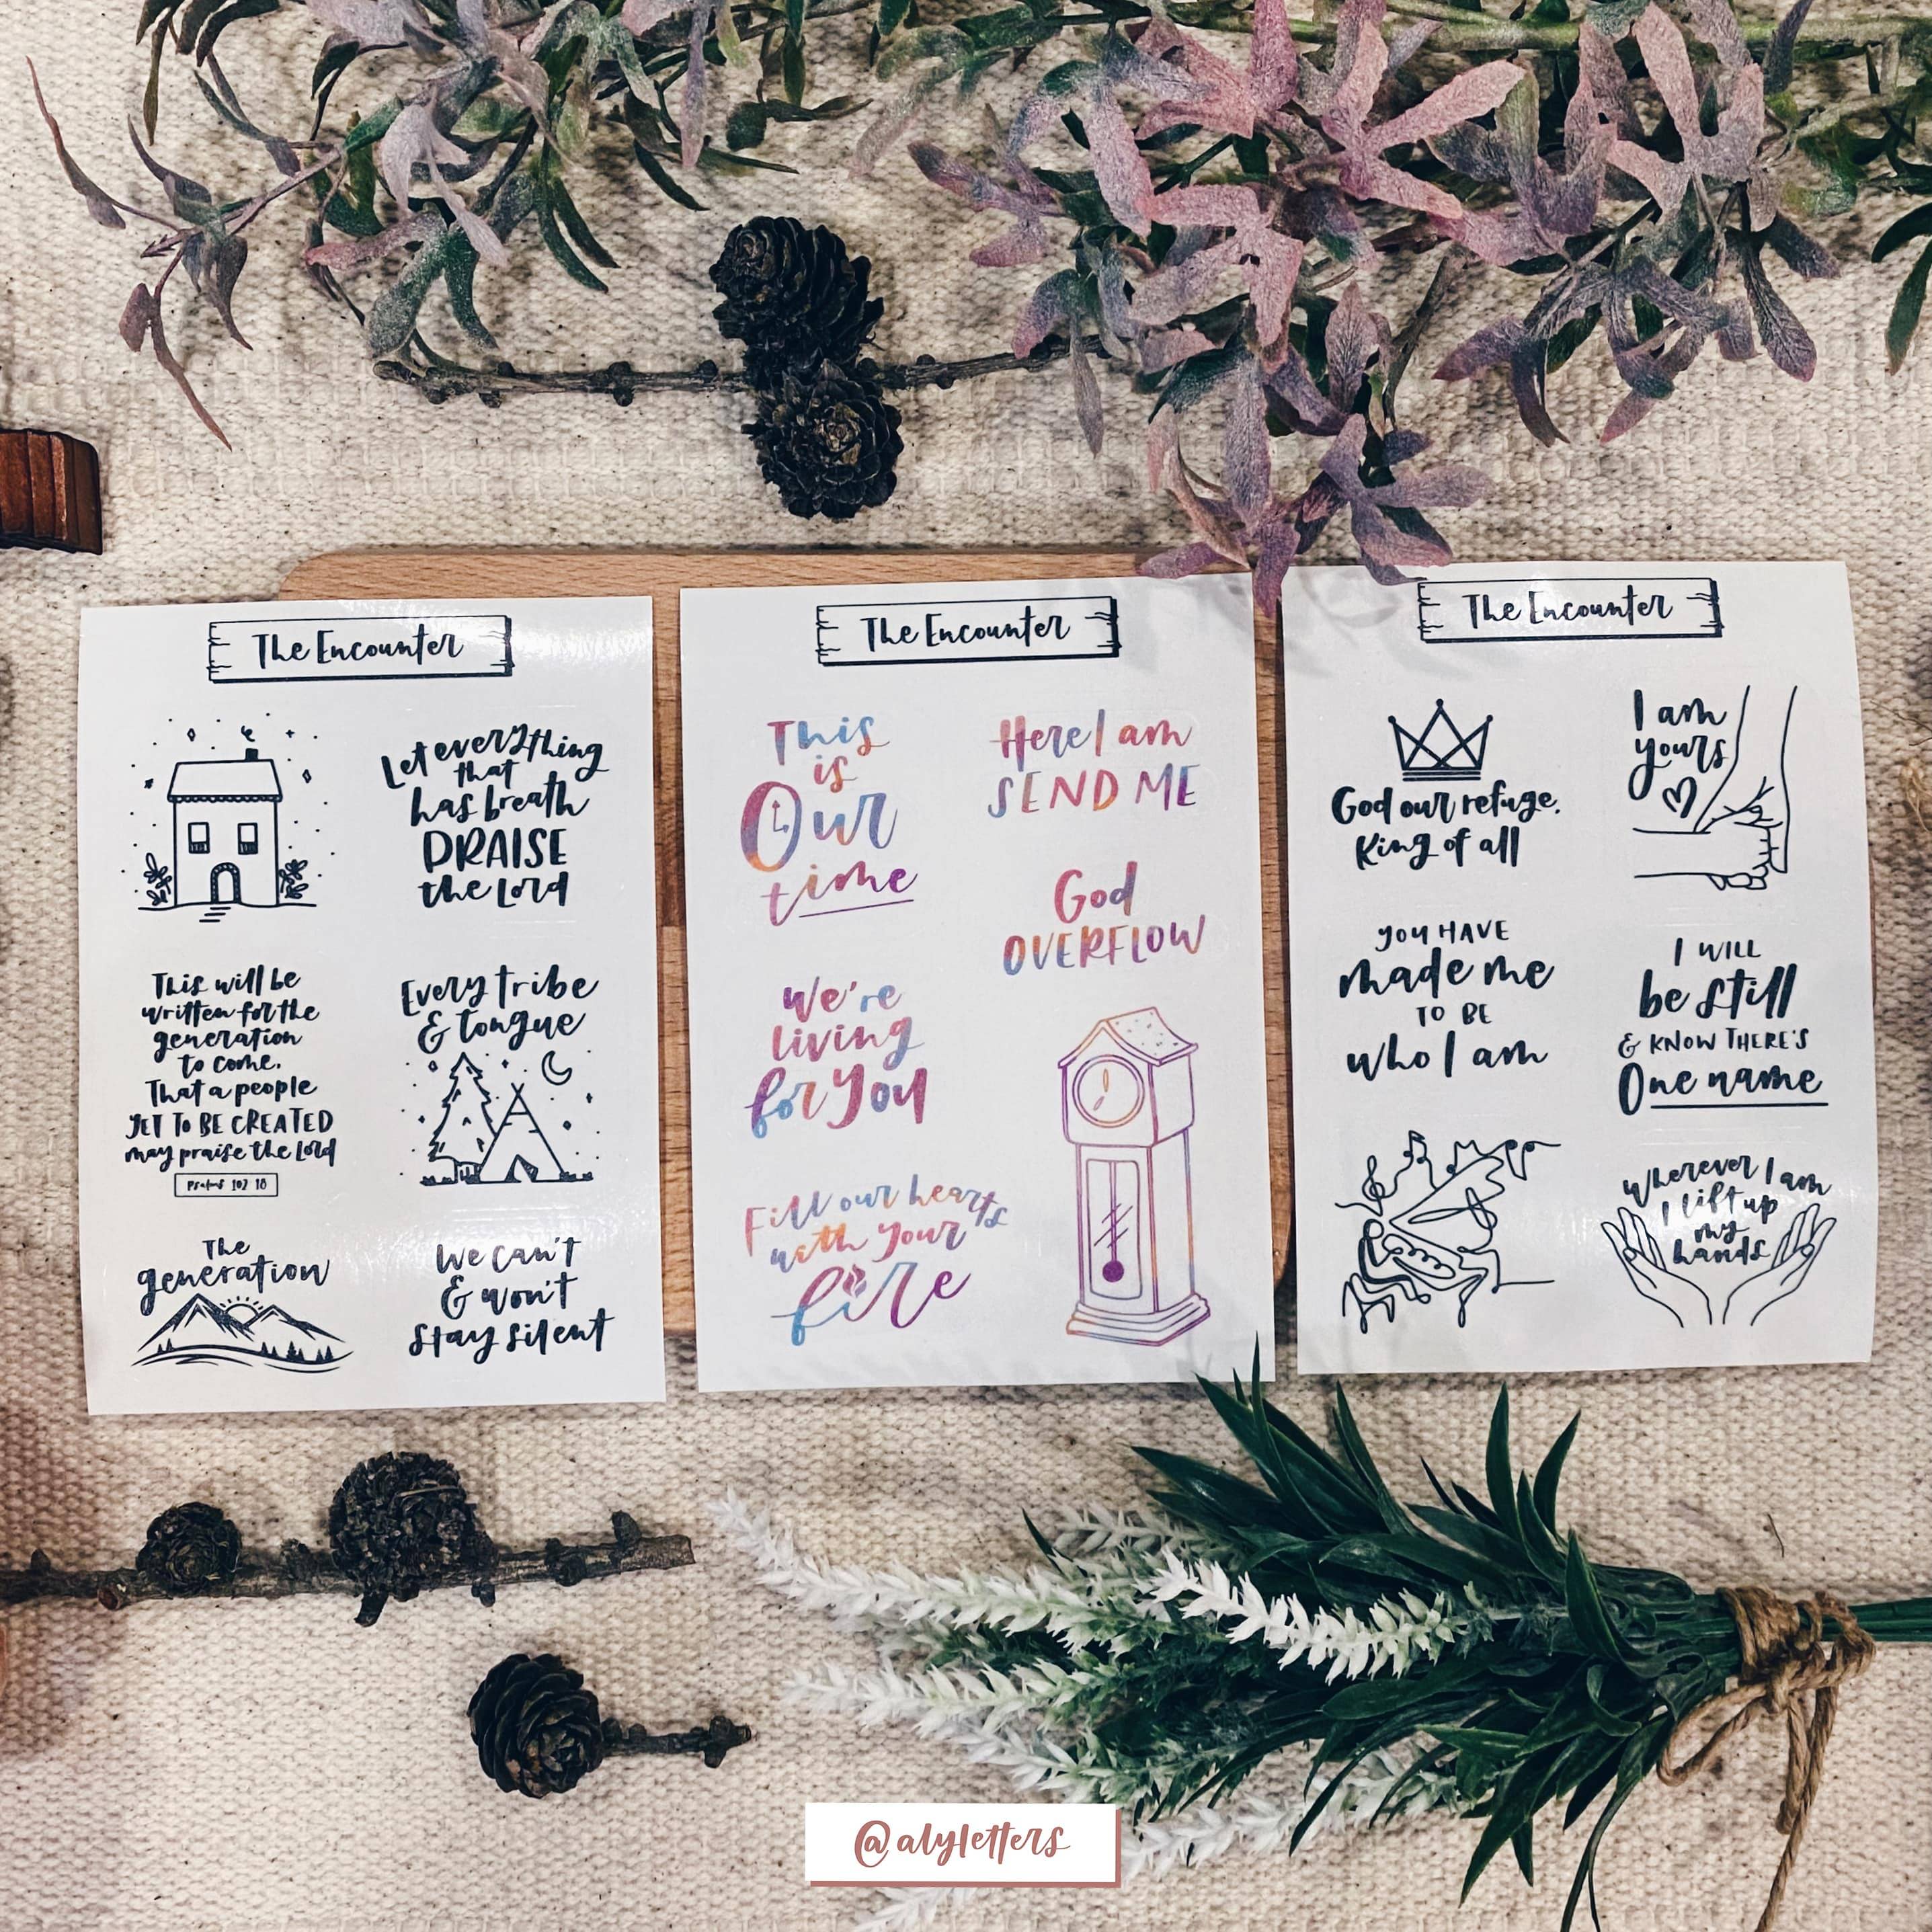 The Encounter
Let everything
that
has breath
PRAISE
the Lord
This will be
written for the
generation
to come.
That a people
YET TO BE CREATED
may praise the Lord
Psalms 102 18
Every tribe
& tongue
The
generation
We can't
& won't
stay silent
The Encounter
This
is
Our
time
Here I am
SEND ME
God
OVERFLOW
We're
living
for You
Fill our hearts
with your
fire
The Encounter
God our refuge,
King of all
I am
yours
YOU HAVE
made me
TO BE
who I am
I WILL
be still
& KNOW THERE'S
One name
Wherever I am
I lift up
my
hands
@alyletters